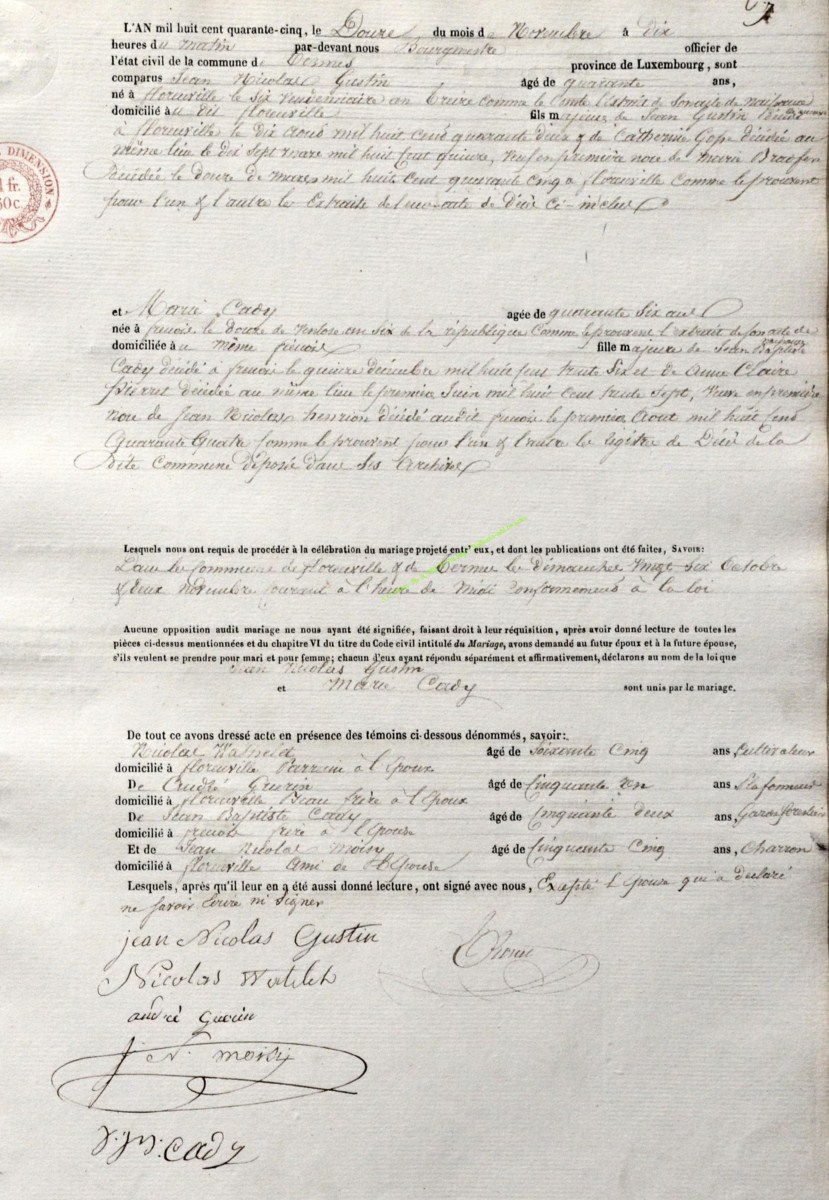 L'AN mil huit cent quarante-cinq, le Douze du mois de Novembre à Dix
heures du matin par-devant nous Bourgmestre officier de
l'état civil de la commune de Termes province de Luxembourg, sont
comparus Jean Nicolas Gustin âgé de quarante ans,
né à florenville le six an treize comme le l'extrait de son acte de naissance
domicilié au dit florenville fils majeur de Jean Gustin Décédé
à florenville le dix août mil huit cent quarante deux & de Catherine décédée au
même lieu le dix sept mars mil huit cent quinze, veuf en première noce de Marie
Décédée le douze de mars mil huit cent quarante cinq à florenville comme le prouvent
pour l'un & l'autre les Extraits de leur acte de Décè ci-inclus
et Marie Cady agée de quarante six ans
née à le douze de ventose an six de la république comme le prouvent l'extrait de son acte de
naissance
domiciliée au même fille majeure de Jean Baptiste
Cady décédé à le quinze décembre mil huit cent trente six et de Anne Claire
Pierret décédée au même lieu le premier Juin mil huit cent trente sept, veuve en première
noce de Jean Nicolas henrion décédé audit le premier Aout mil huit cent
Quarante Quatre comme le prouvent pour l'un & l'autre les registre de Décè de la
Dite Commune déposée dans ses Archives
Lesquels nous ont requis de procéder à la célébration du mariage projeté entr' eux, et dont les publications ont été faites, SAVOIR:
Dans les Communes de florenville & de Termes les dimanches Vingt Six Octobre
& deux Novembre courant à l'heure de Midi Conformément à la loi
Aucune opposition audit mariage ne nous ayant été signifiée, faisant droit à leur réquisition, après avoir donné lecture de toutes les
pièces ci-dessus mentionnées et du chapitre VI du titre du Code civil intitulé du Mariage, avons demandé au futur époux et à la future épouse,
s'ils veulent se prendre pour mari et pour femme; chacun d'eux ayant répondu séparément et affirmativement, déclarons au nom de la loi que
Jean Nicolas Gustin
et Marie Cady sont unis par le mariage.
De tout ce avons dressé acte en présence des témoins ci-dessous dénommés, savoir:
Nicolas âgé de Soixante Cinq ans, Cultivateur
domicilié à florenville Parrain à l'Epoux
De André Guerin âgé de Cinquante un ans Plafonneur
domicilié à florenville Beau frère à l'Epoux
De Jean Baptiste Cady âgé de Cinquante deux ans, Garde forestier
domicilié à frère à l'Epouse
Et de Jean Nicolas Moisy âgé de Cinquante Cinq ans, Charron
domicilié à florenville Ami de l'Epouse
Lesquels, après qu'il leur en a été aussi donné lecture, ont signé avec nous, Excepté L'Epouse qui a déclaré
ne savoir écrire ni signer
jean Nicolas Gustin
Nicolas
andré guerin
J. N. moisy
J. B. Cady
DIMENSION